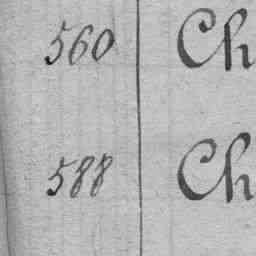 560 Ch
588 Ch